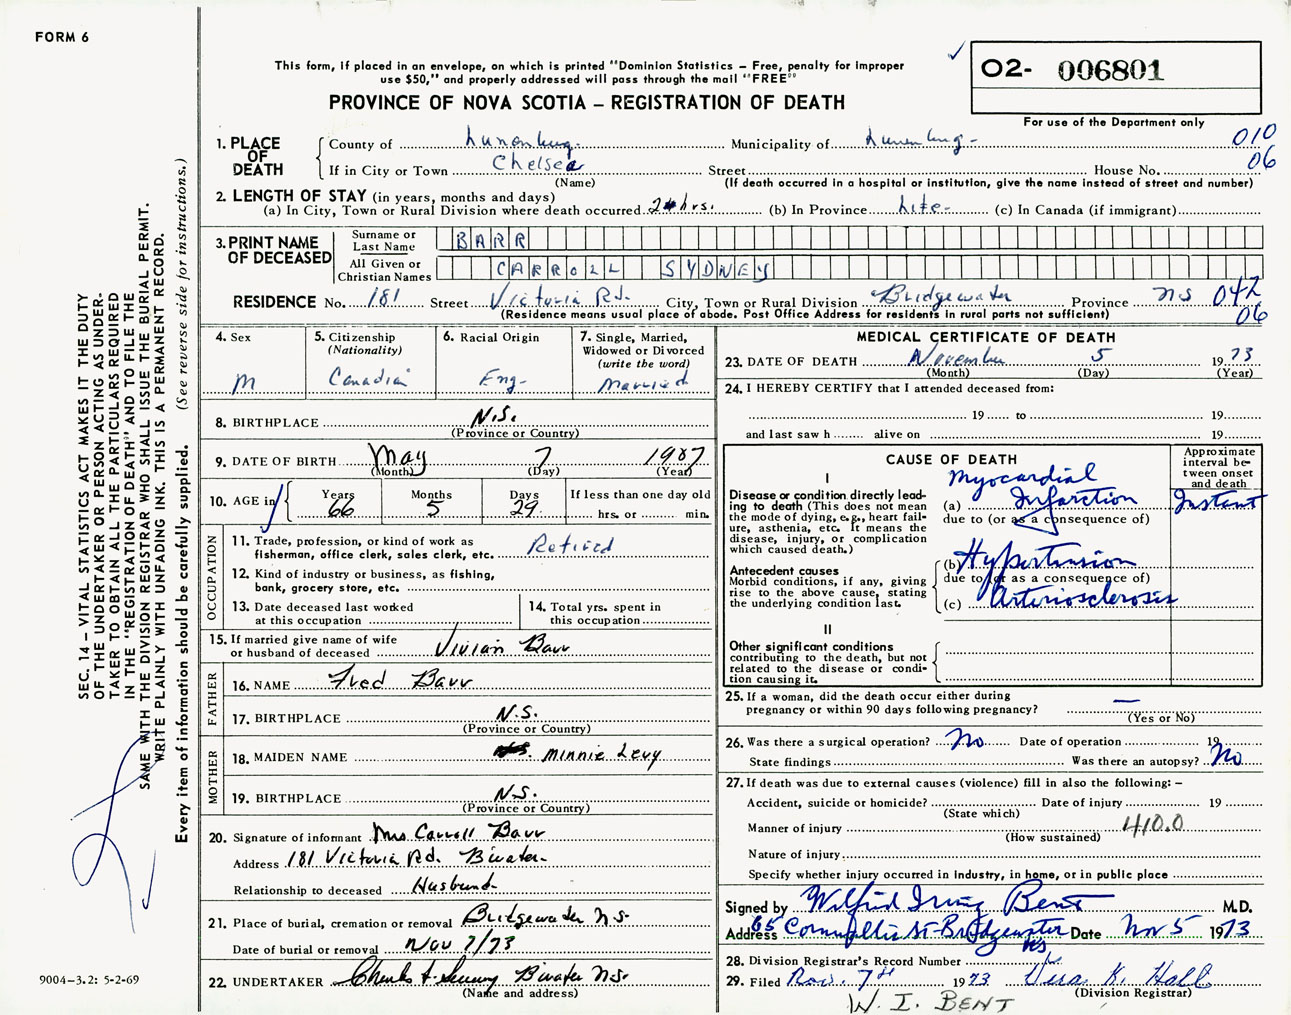 FORM 6
This form, if placed in an envelope, on which is printed "Dominion Statistics – Free, penalty for improper
use $50," and properly addressed will pass through the mail "FREE"
PROVINCE OF NOVA SCOTIA – REGISTRATION OF DEATH
O2- 006801
For use of the Department only
010
06
1. PLACE OF DEATH
County of Lunenburg Municipality of Lunenburg
If in City or Town Chelsea Street House No.
(Name) (If death occurred in a hospital or institution, give the name instead of street and number)
2. LENGTH OF STAY (in years, months and days)
(a) In City, Town or Rural Division where death occurred hrs. (b) In Province Life (c) In Canada (if immigrant)
3. PRINT NAME OF DECEASED
Surname or Last Name BARR
All Given or Christian Names CARROLL SYDNEY
RESIDENCE No. 181 Street Victoria Rd. City, Town or Rural Division Bridgewater Province NS 042
(Residence means usual place of abode. Post Office Address for residents in rural parts not sufficient) 06
4. Sex
M
5. Citizenship
(Nationality)
Canadian
6. Racial Origin
Eng-
7. Single, Married,
Widowed or Divorced
(write the word)
Married
8. BIRTHPLACE N.S.
(Province or Country)
9. DATE OF BIRTH May 7 1907
(Month) (Day) (Year)
10. AGE in
Years Months Days If less than one day old
66 5 29 hrs. or min.
OCCUPATION
11. Trade, profession, or kind of work as
fisherman, office clerk, sales clerk, etc. Retired
12. Kind of industry or business, as fishing,
bank, grocery store, etc.
13. Date deceased last worked
at this occupation
14. Total yrs. spent in
this occupation
15. If married give name of wife
or husband of deceased Vivian Barr
FATHER
16. NAME Fred Barr
17. BIRTHPLACE N.S.
(Province or Country)
MOTHER
18. MAIDEN NAME Minnie Levy
19. BIRTHPLACE N.S.
(Province or Country)
20. Signature of informant Mrs Carroll Barr
Address 181 Victoria Rd. B'water
Relationship to deceased Husband
21. Place of burial, cremation or removal Bridgewater NS-
Date of burial or removal Nov 7/73
22. UNDERTAKER B'water N.S.
(Name and address)
MEDICAL CERTIFICATE OF DEATH
23. DATE OF DEATH November 5 1973
(Month) (Day) (Year)
24. I HEREBY CERTIFY that I attended deceased from:
19 to 19
and last saw h alive on 19
CAUSE OF DEATH
Approximate
interval be-
tween onset
and death
I
Disease or condition directly lead-
ing to death (This does not mean
the mode of dying, e.g., heart fail-
ure, asthenia, etc. It means the
disease, injury, or complication
which caused death.)
Myocardial
(a) Infarction Instant
due to (or as a consequence of)
Antecedent causes
Morbid conditions, if any, giving
rise to the above cause, stating
the underlying condition last.
(b) Hypertension
due to (or as a consequence of)
(c) Arteriosclerosis
II
Other significant conditions
contributing to the death, but not
related to the disease or condi-
tion causing it.
25. If a woman, did the death occur either during
pregnancy or within 90 days following pregnancy? —
(Yes or No)
26. Was there a surgical operation? No Date of operation 19
State findings Was there an autopsy? No
27. If death was due to external causes (violence) fill in also the following: –
Accident, suicide or homicide? Date of injury 19
(State which)
Manner of injury 410.0
(How sustained)
Nature of injury
Specify whether injury occurred in industry, in home, or in public place
Signed by Wilfrid Irving Bent M.D.
Address 65 Cornwallis St- Bridgewater NS Date Nov 5 1973
28. Division Registrar's Record Number
29. Filed Nov. 7th 1973 Vera K. Hall
(Division Registrar)
W. I. BENT
SEC. 14 – VITAL STATISTICS ACT MAKES IT THE DUTY
OF THE UNDERTAKER OR PERSON ACTING AS UNDER-
TAKER TO OBTAIN ALL THE PARTICULARS REQUIRED
IN THE "REGISTRATION OF DEATH" AND TO FILE THE
SAME WITH THE DIVISION REGISTRAR WHO SHALL ISSUE THE BURIAL PERMIT.
WRITE PLAINLY WITH UNFADING INK. THIS IS A PERMANENT RECORD.
Every item of information should be carefully supplied. (See reverse side for instructions.)
9004–3.2: 5-2-69